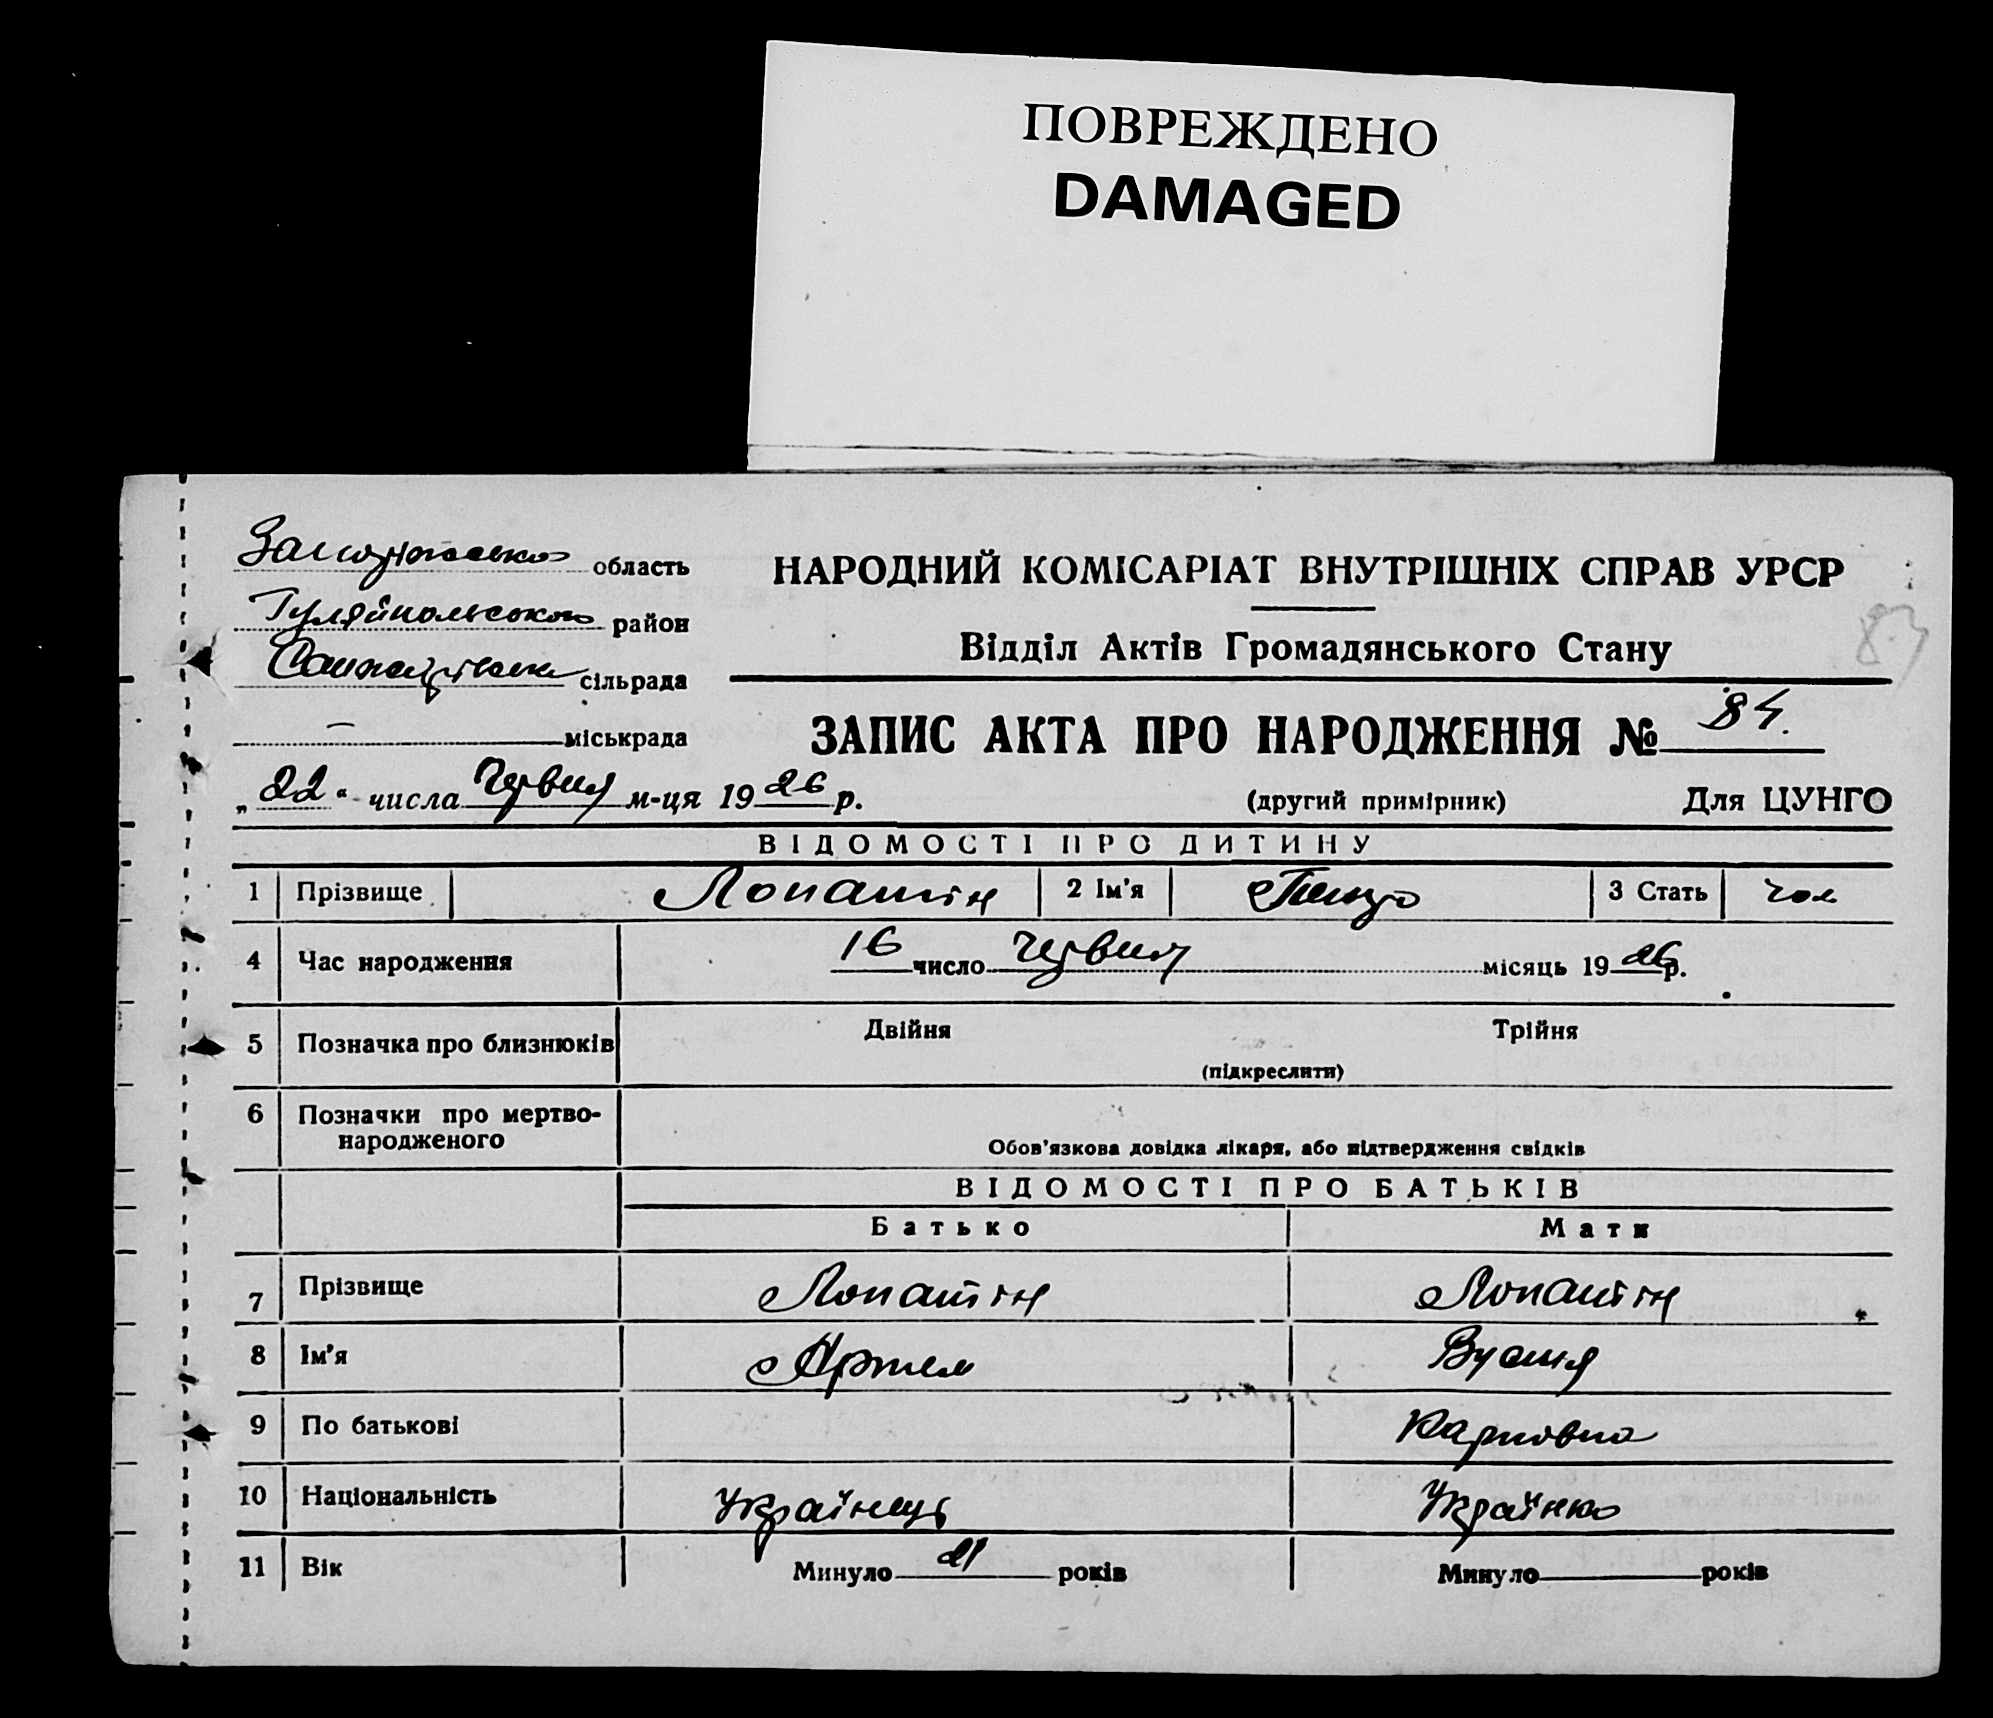 ПОВРЕЖДЕНО
DAMAGED
область
Гуляйпольського район
сільрада
міськрада
НАРОДНИЙ КОМІСАРІАТ ВНУТРІШНІХ СПРАВ УРСР
83
Відділ Актів Громадянського Стану
ЗАПИС АКТА ПРО НАРОДЖЕННЯ № 84.
„22“ числа червня м-ця 1926 р.
(другий примірник) Для ЦУНГО
ВІДОМОСТІ ПРО ДИТИНУ
1 Прізвище Лопатін 2 Ім'я 3 Стать чол
4 Час народження 16 число червня місяць 1926р.
5 Позначка про близнюків Двійня Трійня
(підкреслити)
6 Позначки про мертво-
народженого
Обов'язкова довідка лікаря, або підтвердження свідків
ВІДОМОСТІ ПРО БАТЬКІВ
Батько Мати
7 Прізвище Лопатін Лопатін
8 Ім'я Артем
9 По батькові Карповна
10 Національність Українець Українка
11 Вік Минуло 21 років Минуло років